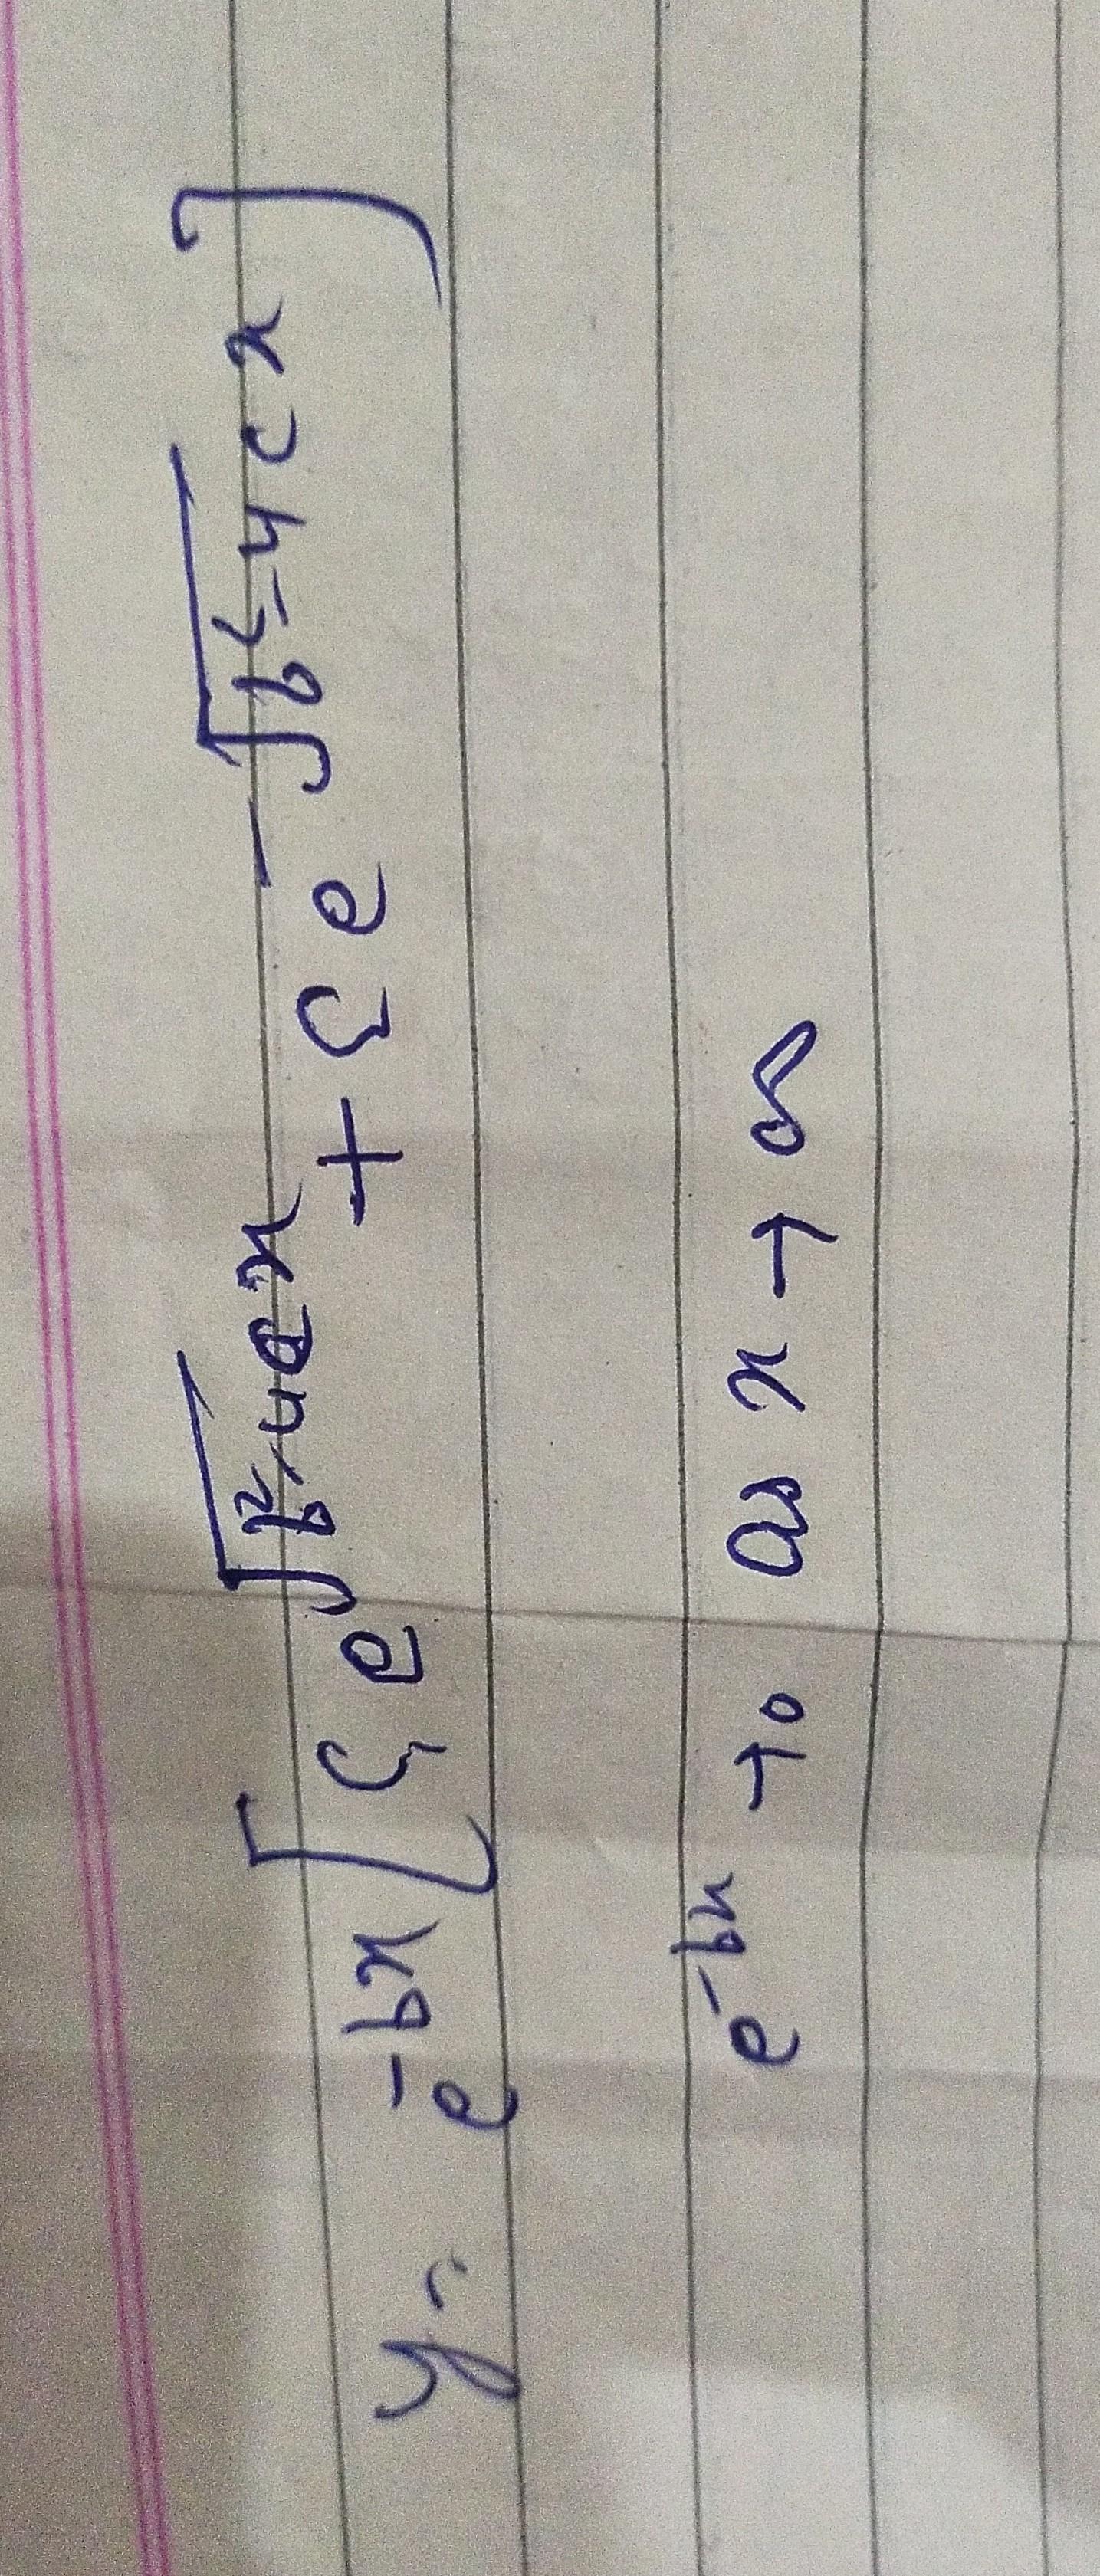 y = e^{-bx} [ C₁ e^{√(b²-4c) x} + C₂ e^{-√(b²-4c) x} ]
e^{-bx} → 0 as x → ∞